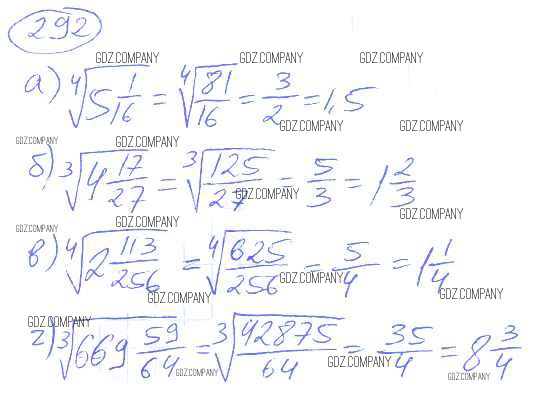 292
GDZ.COMPANY GDZ.COMPANY GDZ.COMPANY
а) ⁴√(5 1/16) = ⁴√(81/16) = 3/2 = 1,5
GDZ.COMPANY GDZ.COMPANY
GDZ.COMPANY GDZ.COMPANY
б) ³√(4 17/27) = ³√(125/27) = 5/3 = 1 2/3
GDZ.COMPANY
GDZ.COMPANY
GDZ.COMPANY GDZ.COMPANY
в) ⁴√(2 113/256) = ⁴√(625/256) = 5/4 = 1 1/4
GDZ.COMPANY
GDZ.COMPANY GDZ.COMPANY
GDZ.COMPANY
г) ³√(669 59/64) = ³√(42875/64) = 35/4 = 8 3/4
GDZ.COMPANY
GDZ.COMPANY GDZ.COMPANY